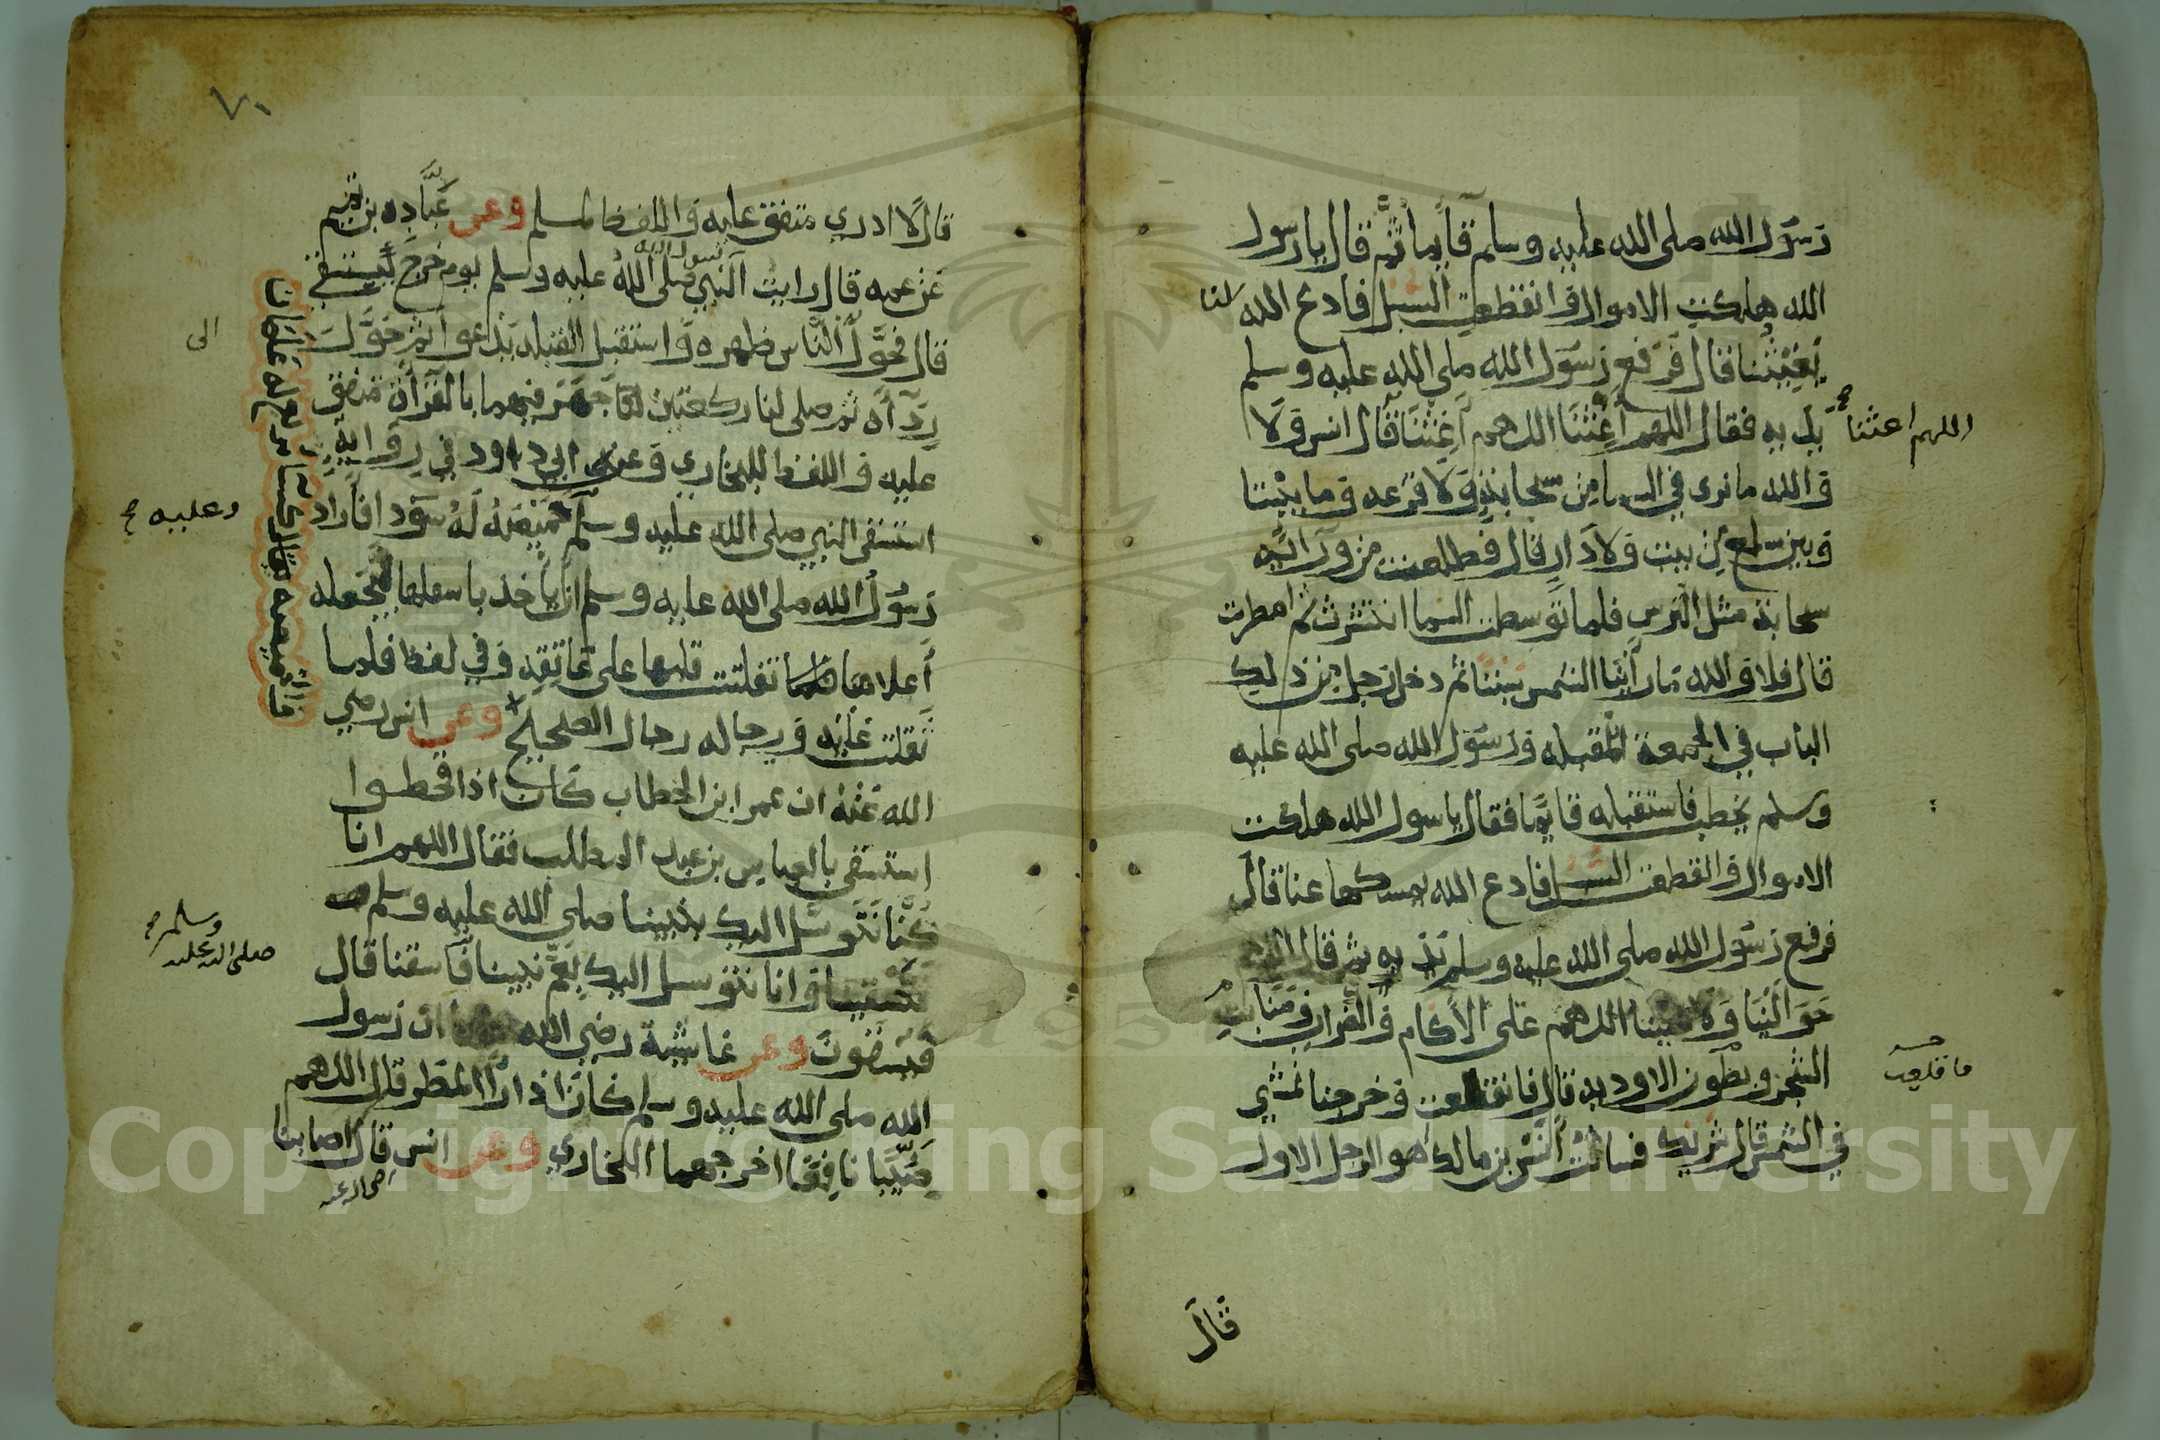 رسول الله صلى الله عليه وسلم قائما ثم قال يا رسول
الله هلكت الاموال وانقطعت السبل فادع الله لنا
يغيثنا قال فرفع رسول الله صلى الله عليه وسلم
يديه فقال اللهم أغثنا اللهم أغثنا قال انس ولا
اللهم اغثنا
والله ما نرى في السما من سحابة ولا قزعه وما بيننا
وبين سلع من بيت ولا دار قال فطلعت من ورائه
سحابة مثل الترس فلما توسطت السما انتشرت ثم امطرت
قال فلا والله ما رأينا الشمس سبتنا ثم دخل رجل من ذلك
الباب في الجمعة المقبله ورسول الله صلى الله عليه
وسلم يخطب فاستقبله قائما فقال يا رسول الله هلكت
الاموال وانقطعت السبل فادع الله يمسكها عنا قال
فرفع رسول الله صلى الله عليه وسلم يديه ثم قال اللهم
حوالينا ولا علينا اللهم على الأكام والظراب ومنابت
الشجر وبطون الاوديه قال فانقطعت وخرجنا نمشي
في الشمس قال شريك فسألت أنس بن مالك اهو الرجل الاول
قال
٧٠
قال لا ادري متفق عليه واللفظ لمسلم وعن عباد بن تميم
عن عمه قال رايت النبي صلى الله عليه وسلم يوم خرج يستسقي
رسول الله
قال فحول الناس ظهره واستقبل القبله يدعوا ثم حول
الى
رداه ثم صلى لنا ركعتين جهر فيهما بالقرأة متفق
عليه واللفظ للبخاري وعن ابي داود في رواية
استسقى النبي صلى الله عليه وسلم وعليه خميصة له سودا فأراد
وعليه صح
رسول الله صلى الله عليه وسلم ان يأخذ باسفلها فيجعله
أعلاها فلما ثقلت قلبها على عاتقه وفي لفظ فلما
ثقلت عليه ورجاله رجال الصحيح وعن انس رضي
الله عنه ان عمر ابن الخطاب كان اذا قحطوا
استسقى بالعباس بن عبد المطلب فقال اللهم انا
كنا نتوسل اليك بنبينا صلى الله عليه وسلم
صلى الله عليه وسلم صح
فتسقينا وانا نتوسل اليك بعم نبينا فاسقنا قال
فيسقون وعن عائشة رضي الله عنها ان رسول
الله صلى الله عليه وسلم كان اذا رأا المطر قال اللهم
صيبا نافعا اخرجهما البخاري وعن انس قال اصابنا
رضي الله عنه
Copyright © King Saud University
1957